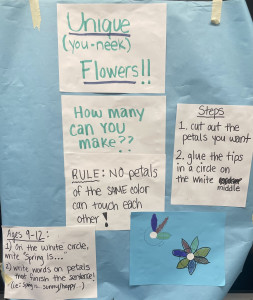 Unique
(you-neek)
Flowers!!
How many
can YOU
make??
RULE: NO petals
of the SAME color
can touch each
other!
Steps
1. cut out the
petals you want
2. glue the tips
in a circle on
the white
middle
Ages 9-12:
1) On the white circle,
write "Spring is..."
2) write words on petals
that finish the sentence!
(i.e: Spring is... sunny, happy...)